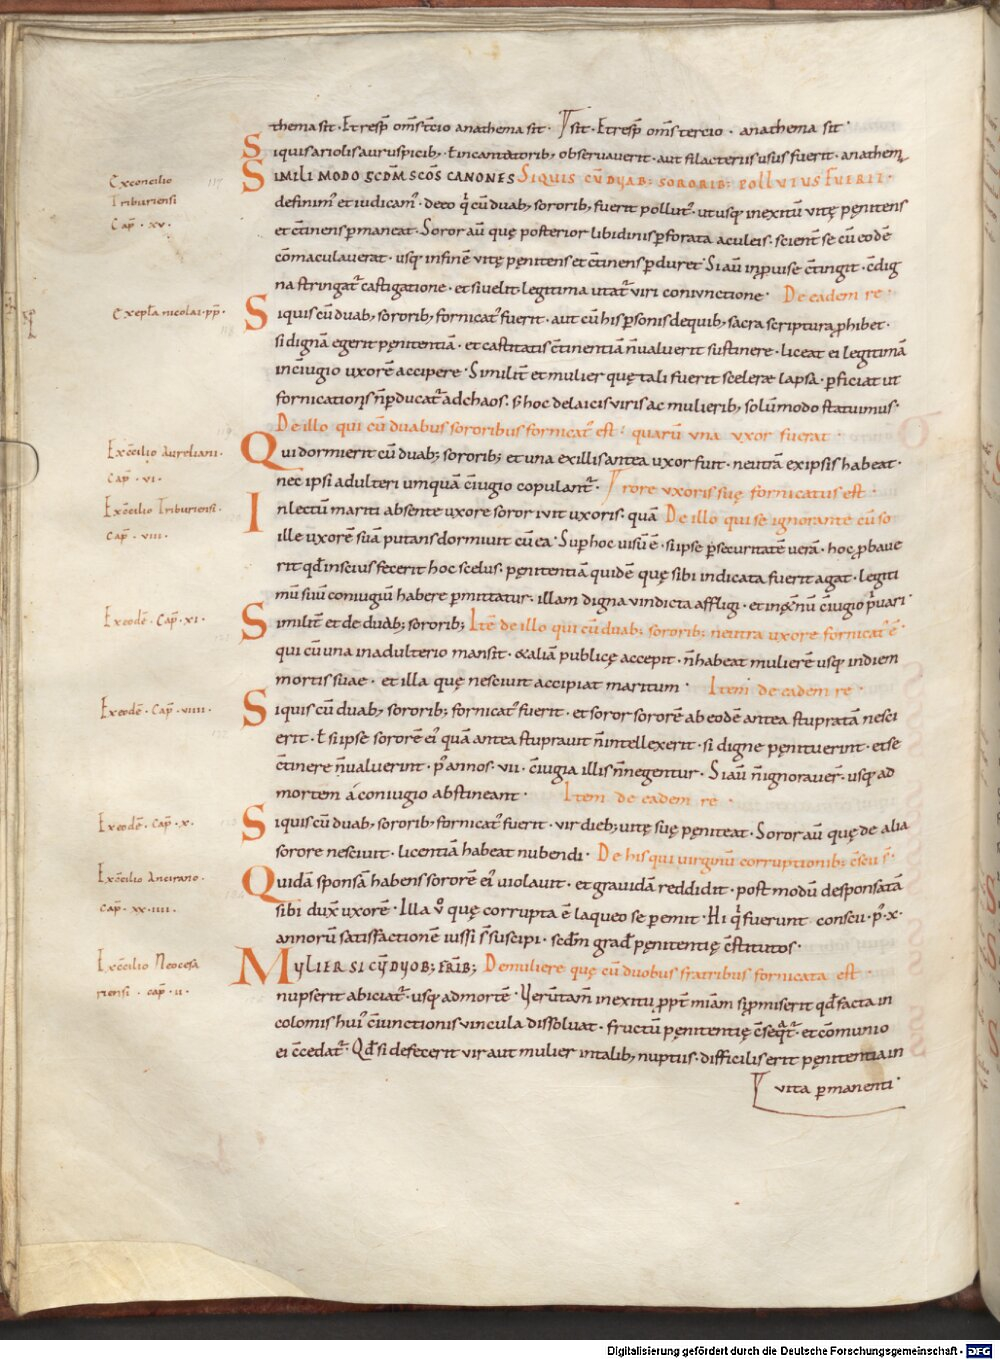 thema sit · Et resp̄ om̄s t̄cio anathema sit · sit · Et resp̄ om̄s tercio · anathema sit ·
Siquis ariolis auruspicib; ł incantatorib; observaverit · aut filacteriis usus fuerit · anathem
Ex concilio Triburiensi Cap̄ · xv ·
SIMILI MODO SCDM SCOS CANONES SIQUIS CŪ DUAB: SORORIB: POLLUTUS FUERIT ·
definim᾽ et iudicam᾽ · de eo q̇ cū duab; sororib; fuerit pollut᾽ · ut usq; in exitū vitę pęnitens
et c̄tinens p̄maneat · Soror aū quę posterior libidinis p̄forata aculeis · scient̄ se cū eodē
cōmaculaverat · usq; in finē vitę pęnitens et c̄tinens p̄duret · Si aū inp̄vise c̄tingit · c̄dig
na stringat᾽ castigatione · et si velit legitima utat᾽ viri coniunctione · De eadem re ·
Ex epła nicolai · pp̄ ·
Siquis cū duab; sororib; fornicat᾽ fuerit · aut cū his p̄sonis de quib; sacra scriptura p̄hibet ·
si dignā egerit pęnitentiā · et castitatis c̄tinentiā n̄ valuerit sustinere · liceat ei legitimā
in c̄iugio uxorē accipere · Similit̄ et mulier quę tali fuerit scelerę lapsa · p̄ficiat ut
fornicationis n̄ p̄ducat᾽ ad chaos · s; hoc de laicis viris ac mulierib; solūmodo statuimus ·
De illo qui cū duabus sororibus fornicat᾽ est · quarū una uxor fuerat ·
Ex c̄cilio Aureliani · Cap̄ · vi ·
Qui dormierit cū duab; sororib; et una ex illis antea uxor fuit · neutrā ex ipsis habeat ·
nec ipsi adulteri umquā c̄iugio copulant᾽ · rore uxoris suę fornicatus est ·
Ex c̄cilio Triburiensi · Cap̄ · viii ·
In lectū mariti absente uxore soror ivit uxoris · quā De illo qui se ignorante cū so
ille uxorē suā putans dormivit cū ea · Sup̄ hoc visū ē · si ipse p̄ securitatē verā · hoc p̄bave
rit qđ inscius fecerit hoc scelus · pęnitentiā quidē quę sibi indicata fuerit agat · legiti
mū suū coniugiū habere p̄mittatur · illam digna vindicta affligi · et in ęt̄nū c̄iugio p̄vari ·
Ex eodē · Cap̄ · xi ·
Similit̄ et de duab; sororib; Itē de illo qui cū duab: sororib: neutra uxore fornicat᾽ ē ·
qui cū una in adulterio mansit · & aliā publicę accepit · n̄ habeat mulierē usq; in diem
mortis suae · et illa quę nescivit accipiat maritum · Item de eadem re ·
Ex eodē · Cap̄ · viiii ·
Siquis cū duab; sororib; fornicat᾽ fuerit · et soror sororē ab eodē antea stupratā nesci
erit · ł si ipse sororē ei᾽ quā antea stupravit n̄ intellexerit · si digne pęnituerint · et se
c̄tinere n̄ valuerint · p᾽ annos · vii · c̄iugia illis n̄ negentur · Si aū n̄ ignoraver̄ · usq; ad
mortem a coniugio abstineant · Item de eadem re ·
Ex eodē · Cap̄ · x ·
Siquis cū duab; sororib; fornicat᾽ fuerit · vir dieb; vitę suę pęniteat · Soror aū quę de alia
sorore nescivit · licentiā habeat nubendi · De his qui virginū corruptionib: c̄seu s̄ ·
Ex c̄cilio Ancirano · Cap̄ · xx · iiii ·
Quidā sponsā habens sororē ei᾽ violavit · et gravidā reddidit · post modū desponsatā
sibi dux̄ uxorē · Illa v̊ quę corrupta ē laqueo se p̄emit · Hi q̇ fuerunt conscii · p᾽ · x ·
annorū satisfactionē iussi s̄ suscipi · scđm grad᾽ pęnitentię c̄stitutos ·
Ex c̄cilio Neocesa riensi · cap̄ · ii ·
MULIER SI CŪ DUOB; FRIB; De muliere quę cū duobus fratribus fornicata est ·
nupserit abiciat᾽ · usq; ad mortē · Verūtam̄ in exitu p̄pt᾽ miām si p̄miserit qđ facta in
colomis hui᾽ c̄iunctionis vincula dissolvat · fructū pęnitentię c̄seq̄t᾽ · et cōmunio
ei c̄cedat᾽ · Qđ si defecerit vir aut mulier in talib; nuptiis · difficilis erit pęnitentia in
vita p̄manenti ·
Digitalisierung gefördert durch die Deutsche Forschungsgemeinschaft · DFG